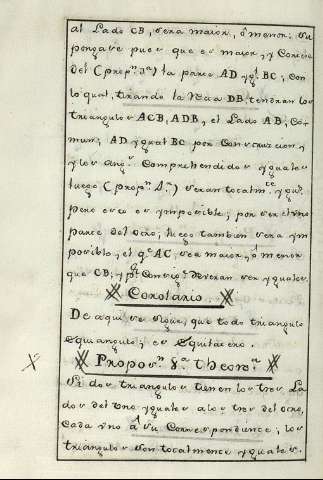 al Lado CB, sera maior, ó menor: Su
pongase pues que es maior, y Cortese
del (propⁿ 3ª) la parte AD yg.l BC; Con
lo qual, tirando la recta DB, tendran los
triangulos ACB, ADB, el Lado AB, Co-
mun; AD ygual BC por Construczion, y
y los angs. Comprehendidos yguales
luego (propⁿ 4ª) seran totalmte. ygs.
pero esto es ymposible; por ser el uno
parte del otro; luego tambien sera ym
posible, el qe. AC, sea maior, ó menor
que CB; y pr. Consigte. deveran ser yguales.
Corolario.
De aqui se sigue, que todo triangulo
equiangulo; es equilatero.
Proposn. 8ª. theorª.
Si dos triangulos tienen los tres La
dos del uno yguales a los tres del otro,
Cada uno á su Correspondiente; los
triangulos son totalmente yguales.